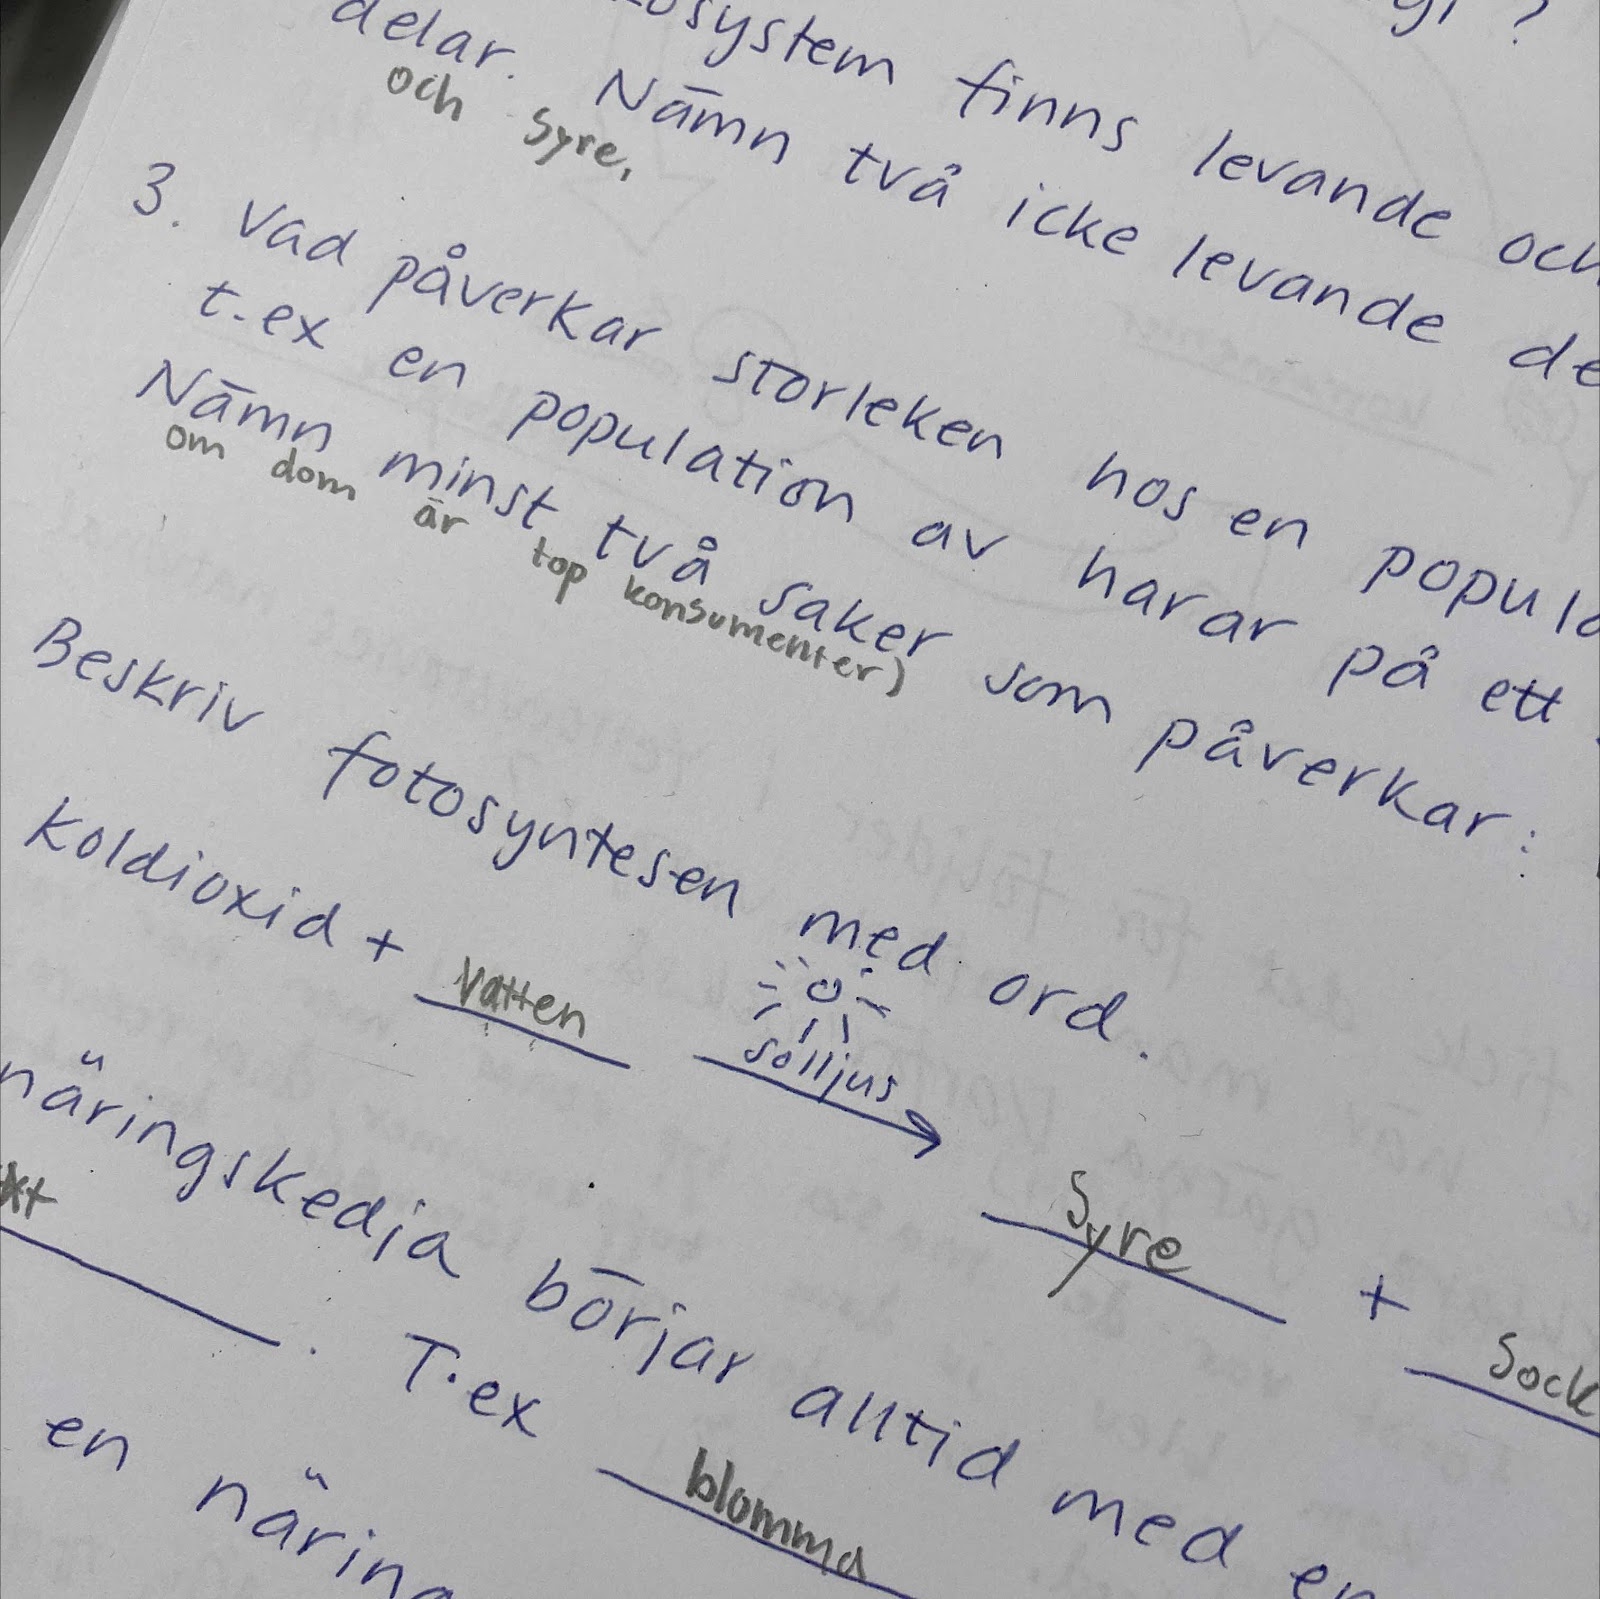 finns levande och
delar. Nämn två icke levande
och syre,
3. Vad påverkar storleken hos en
t.ex en population av harar på ett
Nämn minst två saker som påverkar:
om dom är top konsumenter)
Beskriv fotosyntesen med ord.
Koldioxid + vatten solljus syre +
näringskedja börjar alltid med
T.ex blomma
en